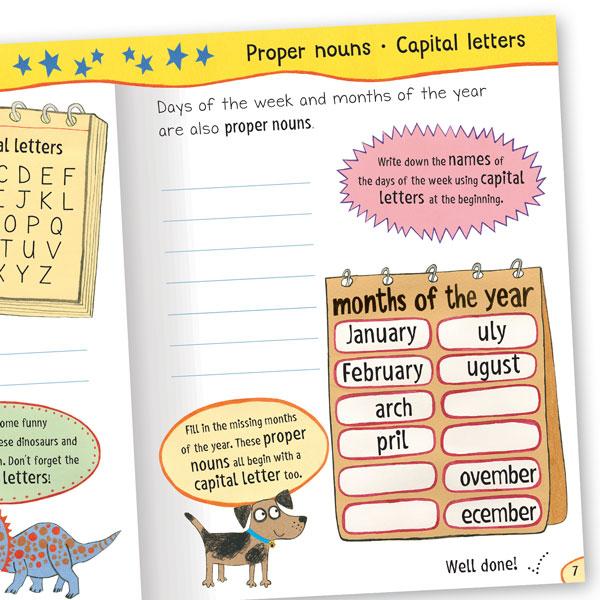 Proper nouns • Capital letters
al letters
C D E F
J K L
O P Q
T U V
Y Z
ome funny
ese dinosaurs and
. Don't forget the
letters!
Days of the week and months of the year
are also proper nouns.
Write down the names of
the days of the week using capital
letters at the beginning.
months of the year
January
uly
February
ugust
arch
pril
ovember
ecember
Fill in the missing months
of the year. These proper
nouns all begin with a
capital letter too.
Well done!
7